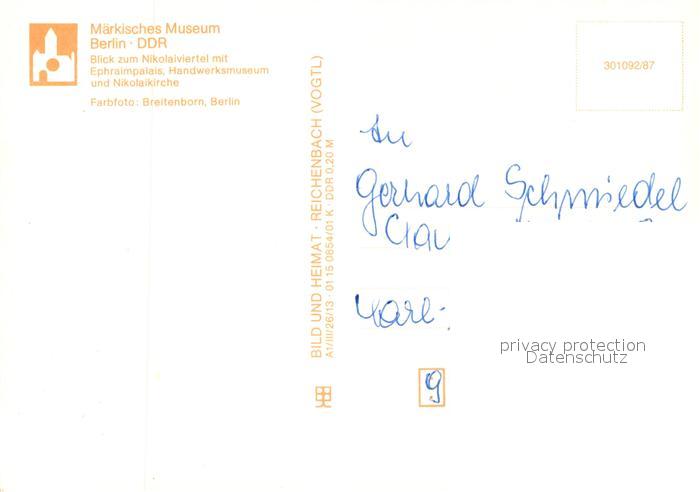 Märkisches Museum
Berlin · DDR
Blick zum Nikolaiviertel mit
Ephraimpalais, Handwerksmuseum
und Nikolaikirche
Farbfoto: Breitenborn, Berlin
BILD UND HEIMAT · REICHENBACH (VOGTL)
A1/III/26/13 · 01 15 0854/01 K · DDR 0,20 M
301092/87
An
Gerhard Schmiedel
Karl-
9
privacy protection
Datenschutz